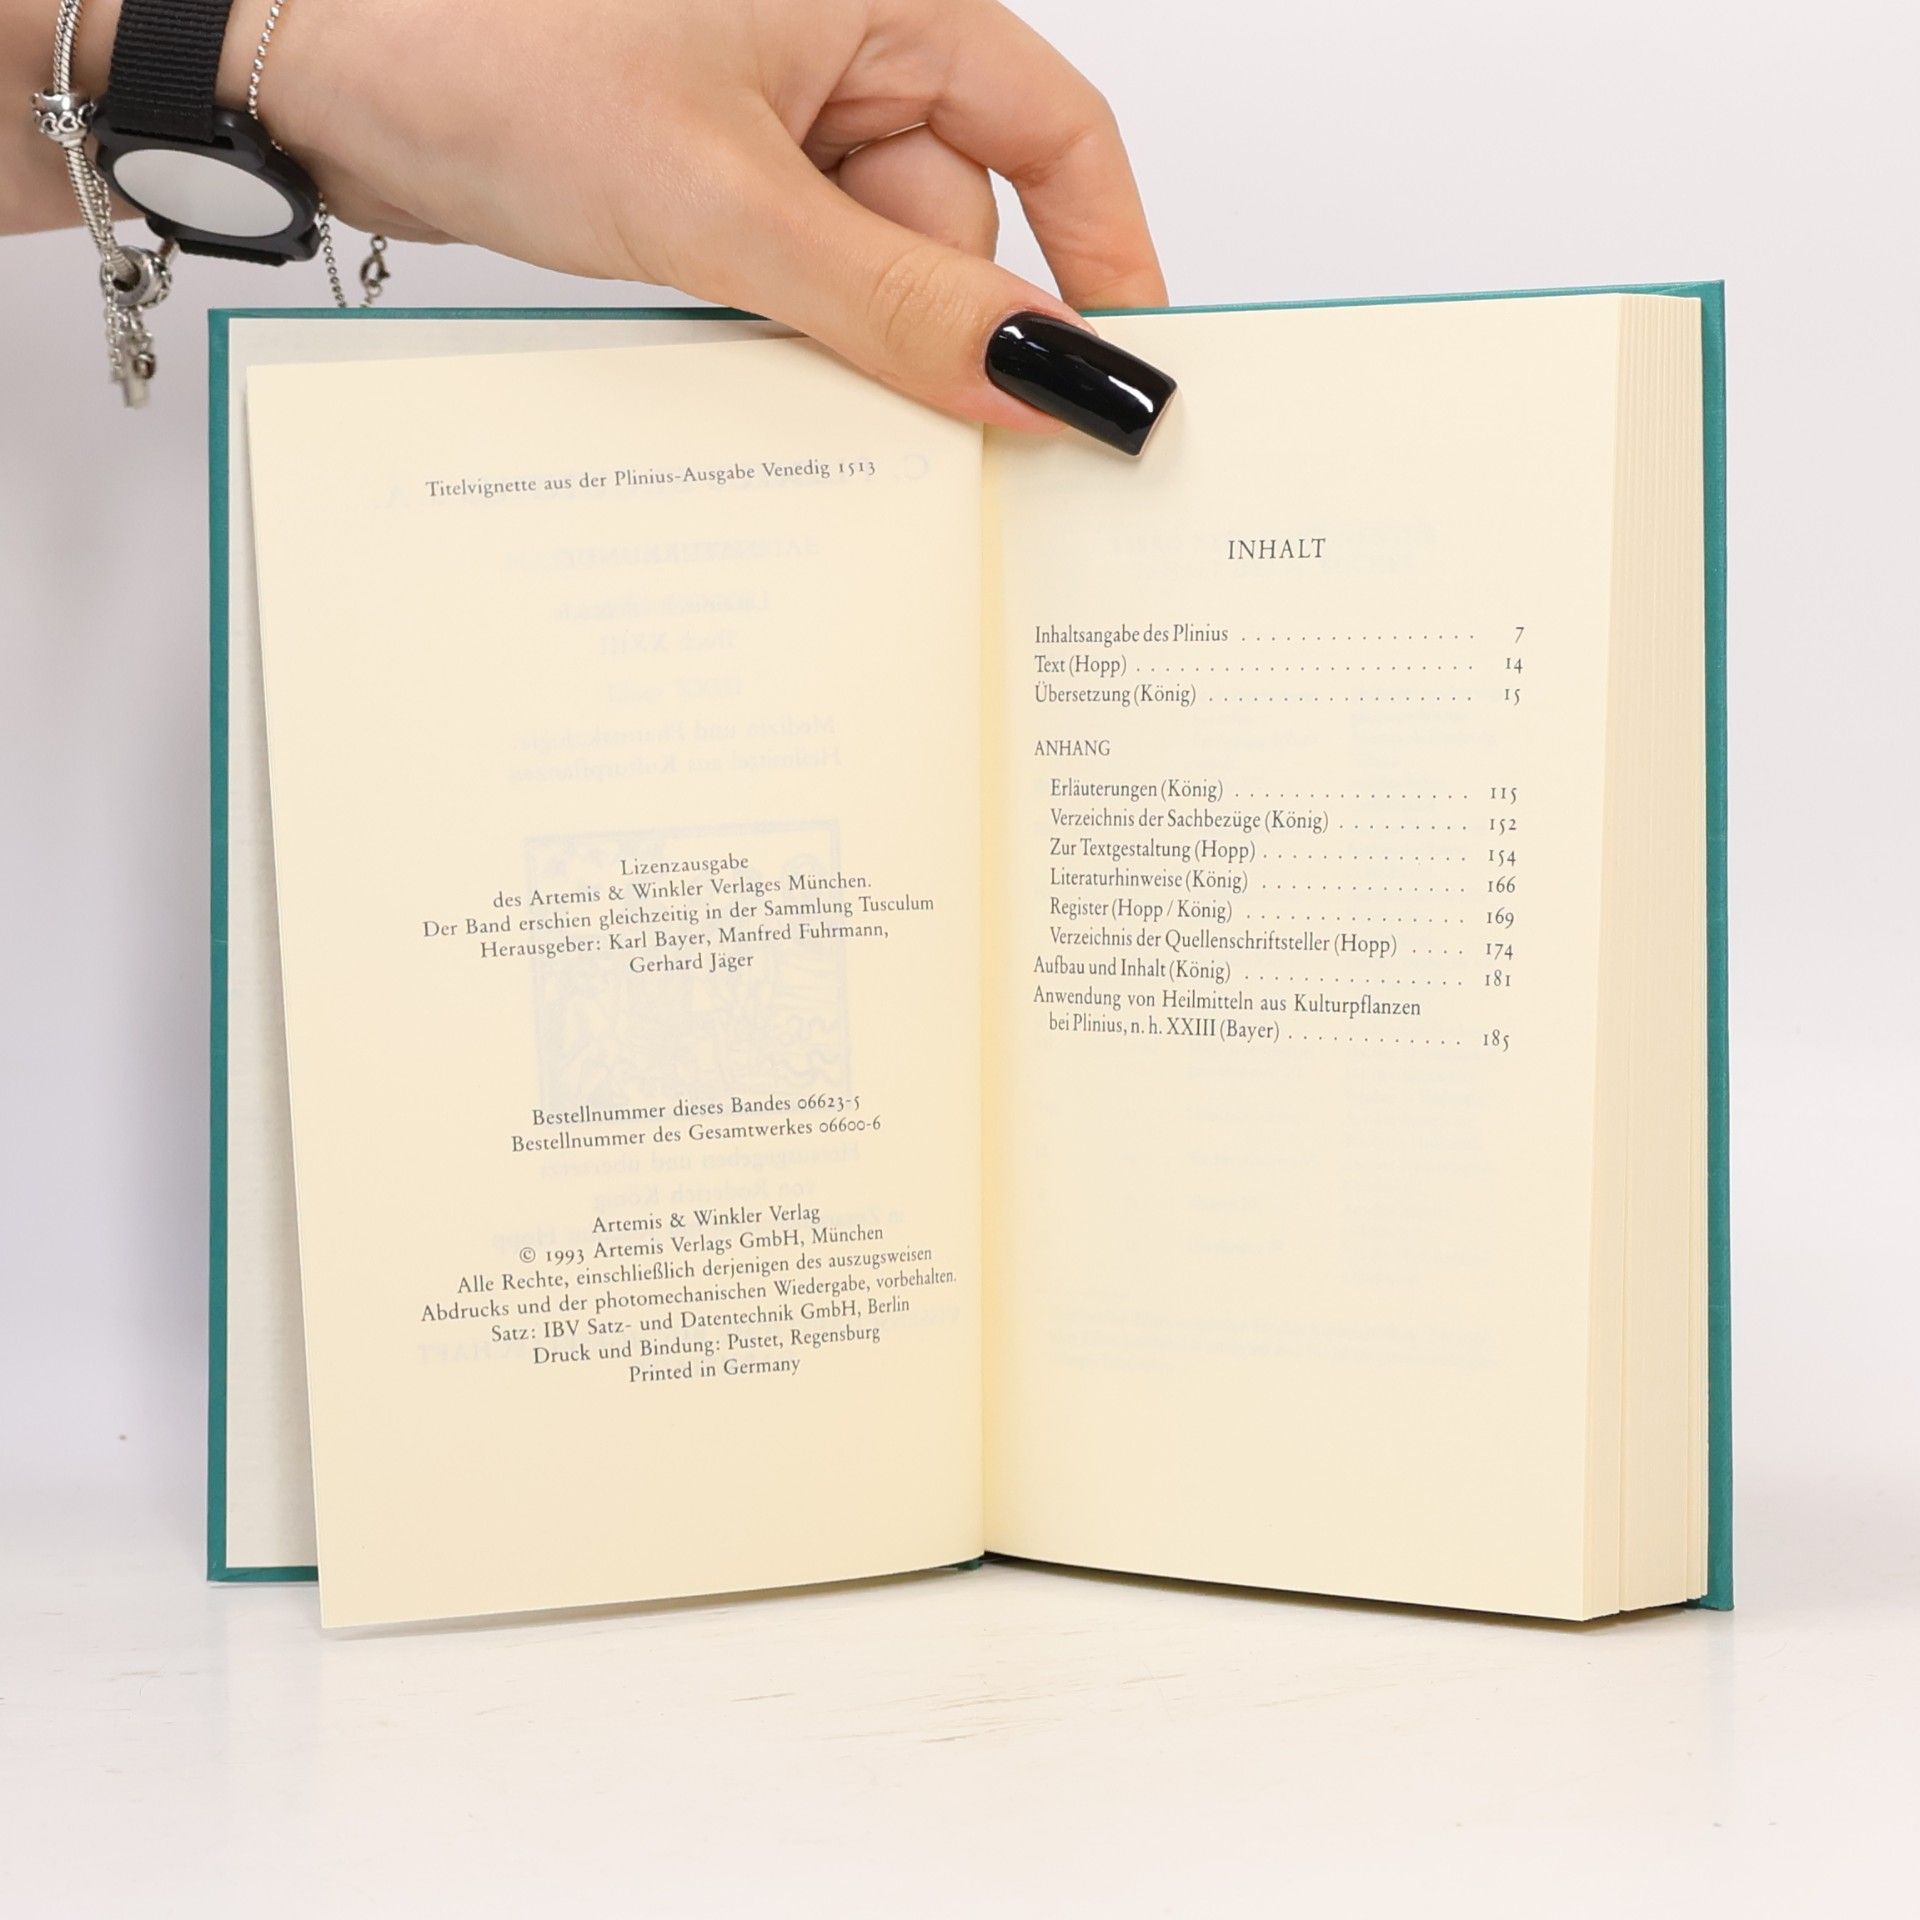 Titelvignette aus der Plinius-Ausgabe Venedig 1513
Lizenzausgabe
des Artemis & Winkler Verlages München.
Der Band erschien gleichzeitig in der Sammlung Tusculum
Herausgeber: Karl Bayer, Manfred Fuhrmann,
Gerhard Jäger
Bestellnummer dieses Bandes 06623-5
Bestellnummer des Gesamtwerkes 06600-6
Artemis & Winkler Verlag
© 1993 Artemis Verlags GmbH, München
Alle Rechte, einschließlich derjenigen des auszugsweisen
Abdrucks und der photomechanischen Wiedergabe, vorbehalten.
Satz: IBV Satz- und Datentechnik GmbH, Berlin
Druck und Bindung: Pustet, Regensburg
Printed in Germany
INHALT
Inhaltsangabe des Plinius . . . . . . . . . . . . . . . . 7
Text (Hopp) . . . . . . . . . . . . . . . . . . . . . . . 14
Übersetzung (König) . . . . . . . . . . . . . . . . . . 15
ANHANG
Erläuterungen (König) . . . . . . . . . . . . . . . . 115
Verzeichnis der Sachbezüge (König) . . . . . . . . . 152
Zur Textgestaltung (Hopp) . . . . . . . . . . . . . . 154
Literaturhinweise (König) . . . . . . . . . . . . . . 166
Register (Hopp / König) . . . . . . . . . . . . . . . 169
Verzeichnis der Quellenschriftsteller (Hopp) . . . . 174
Aufbau und Inhalt (König) . . . . . . . . . . . . . . . 181
Anwendung von Heilmitteln aus Kulturpflanzen
bei Plinius, n. h. XXIII (Bayer) . . . . . . . . . . . . 185